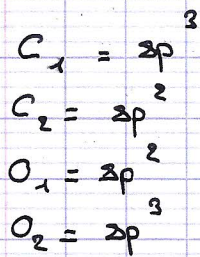 C₁ = sp³
C₂ = sp²
O₁ = sp²
O₂ = sp³